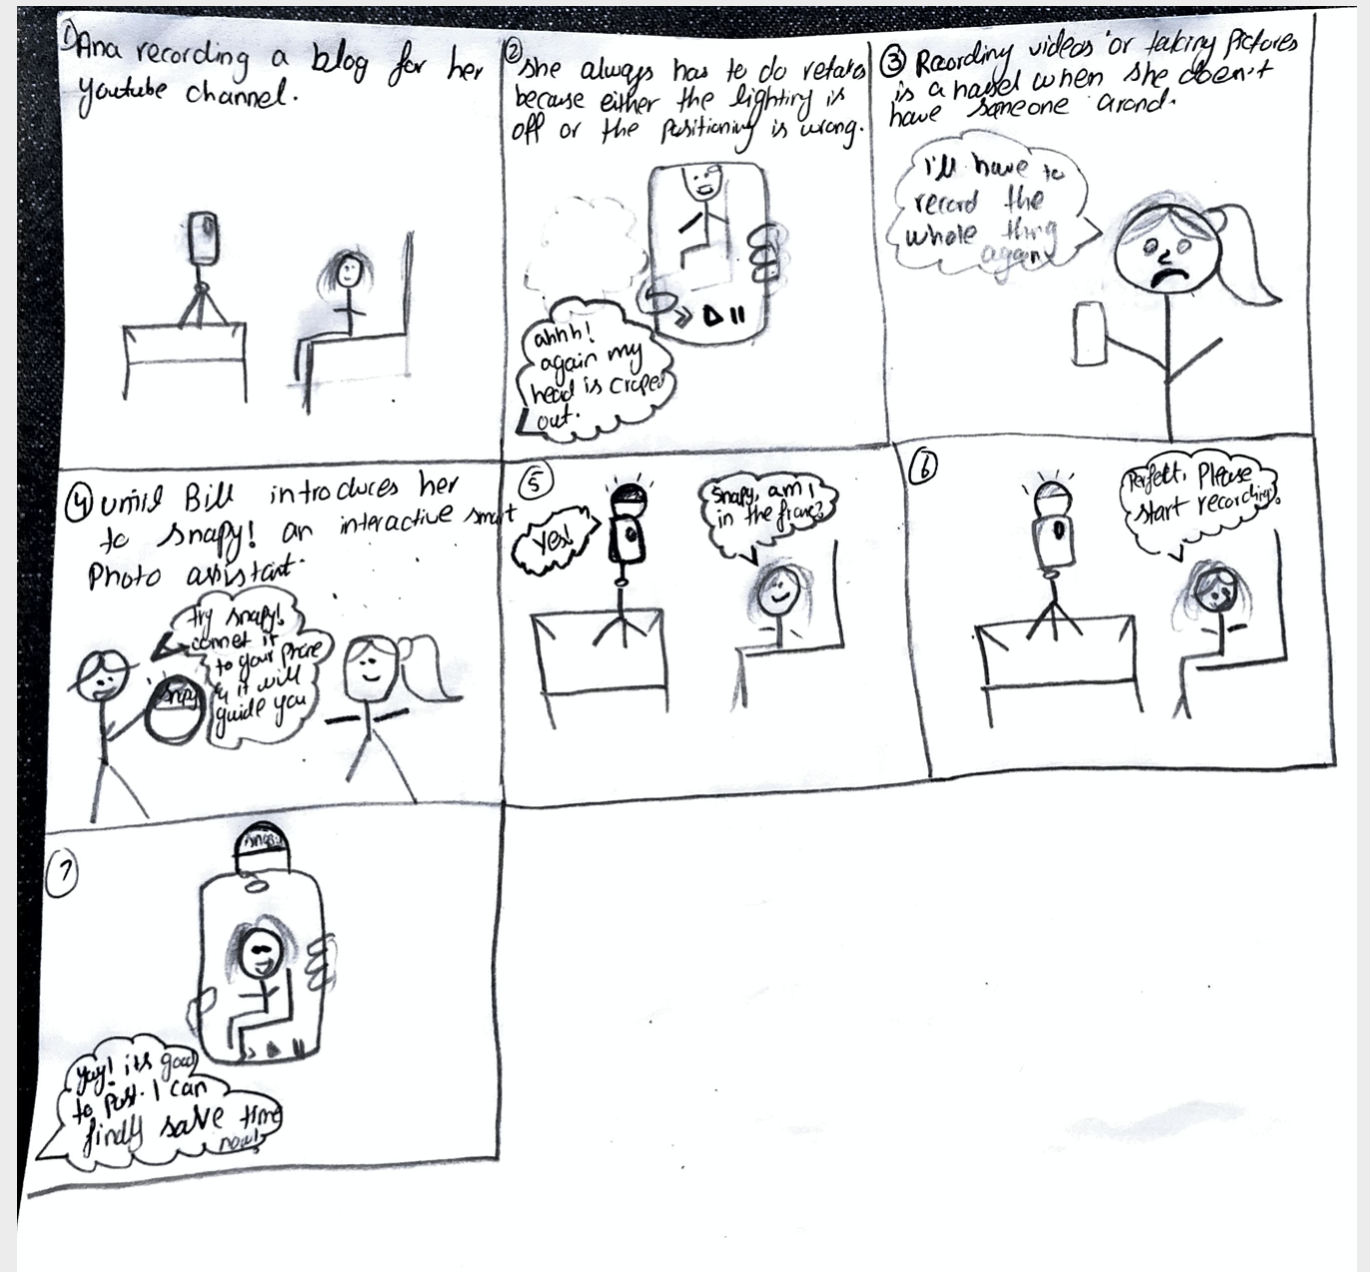 1) Ana recording a blog for her
Youtube channel.
② she always has to do retaks
because either the lighting is
off or the positioning is wrong.
ahhh!
again my
head is croped
out.
③ Recording videos or taking pictures
is a hassel when she doesn't
have someone arond.
i'll have to
record the
whole thing
again
④ until Bill introduces her
to snapy! an interactive smart
Photo assistant.
try snapy!
connet it
to your phone
& it will
guide you
snapy
⑤
Snapy, am i
in the frame?
Yes!
⑥
Perfect, Please
start recording.
⑦
snapy
yay! its good
to Post. I can
finally save time
now!